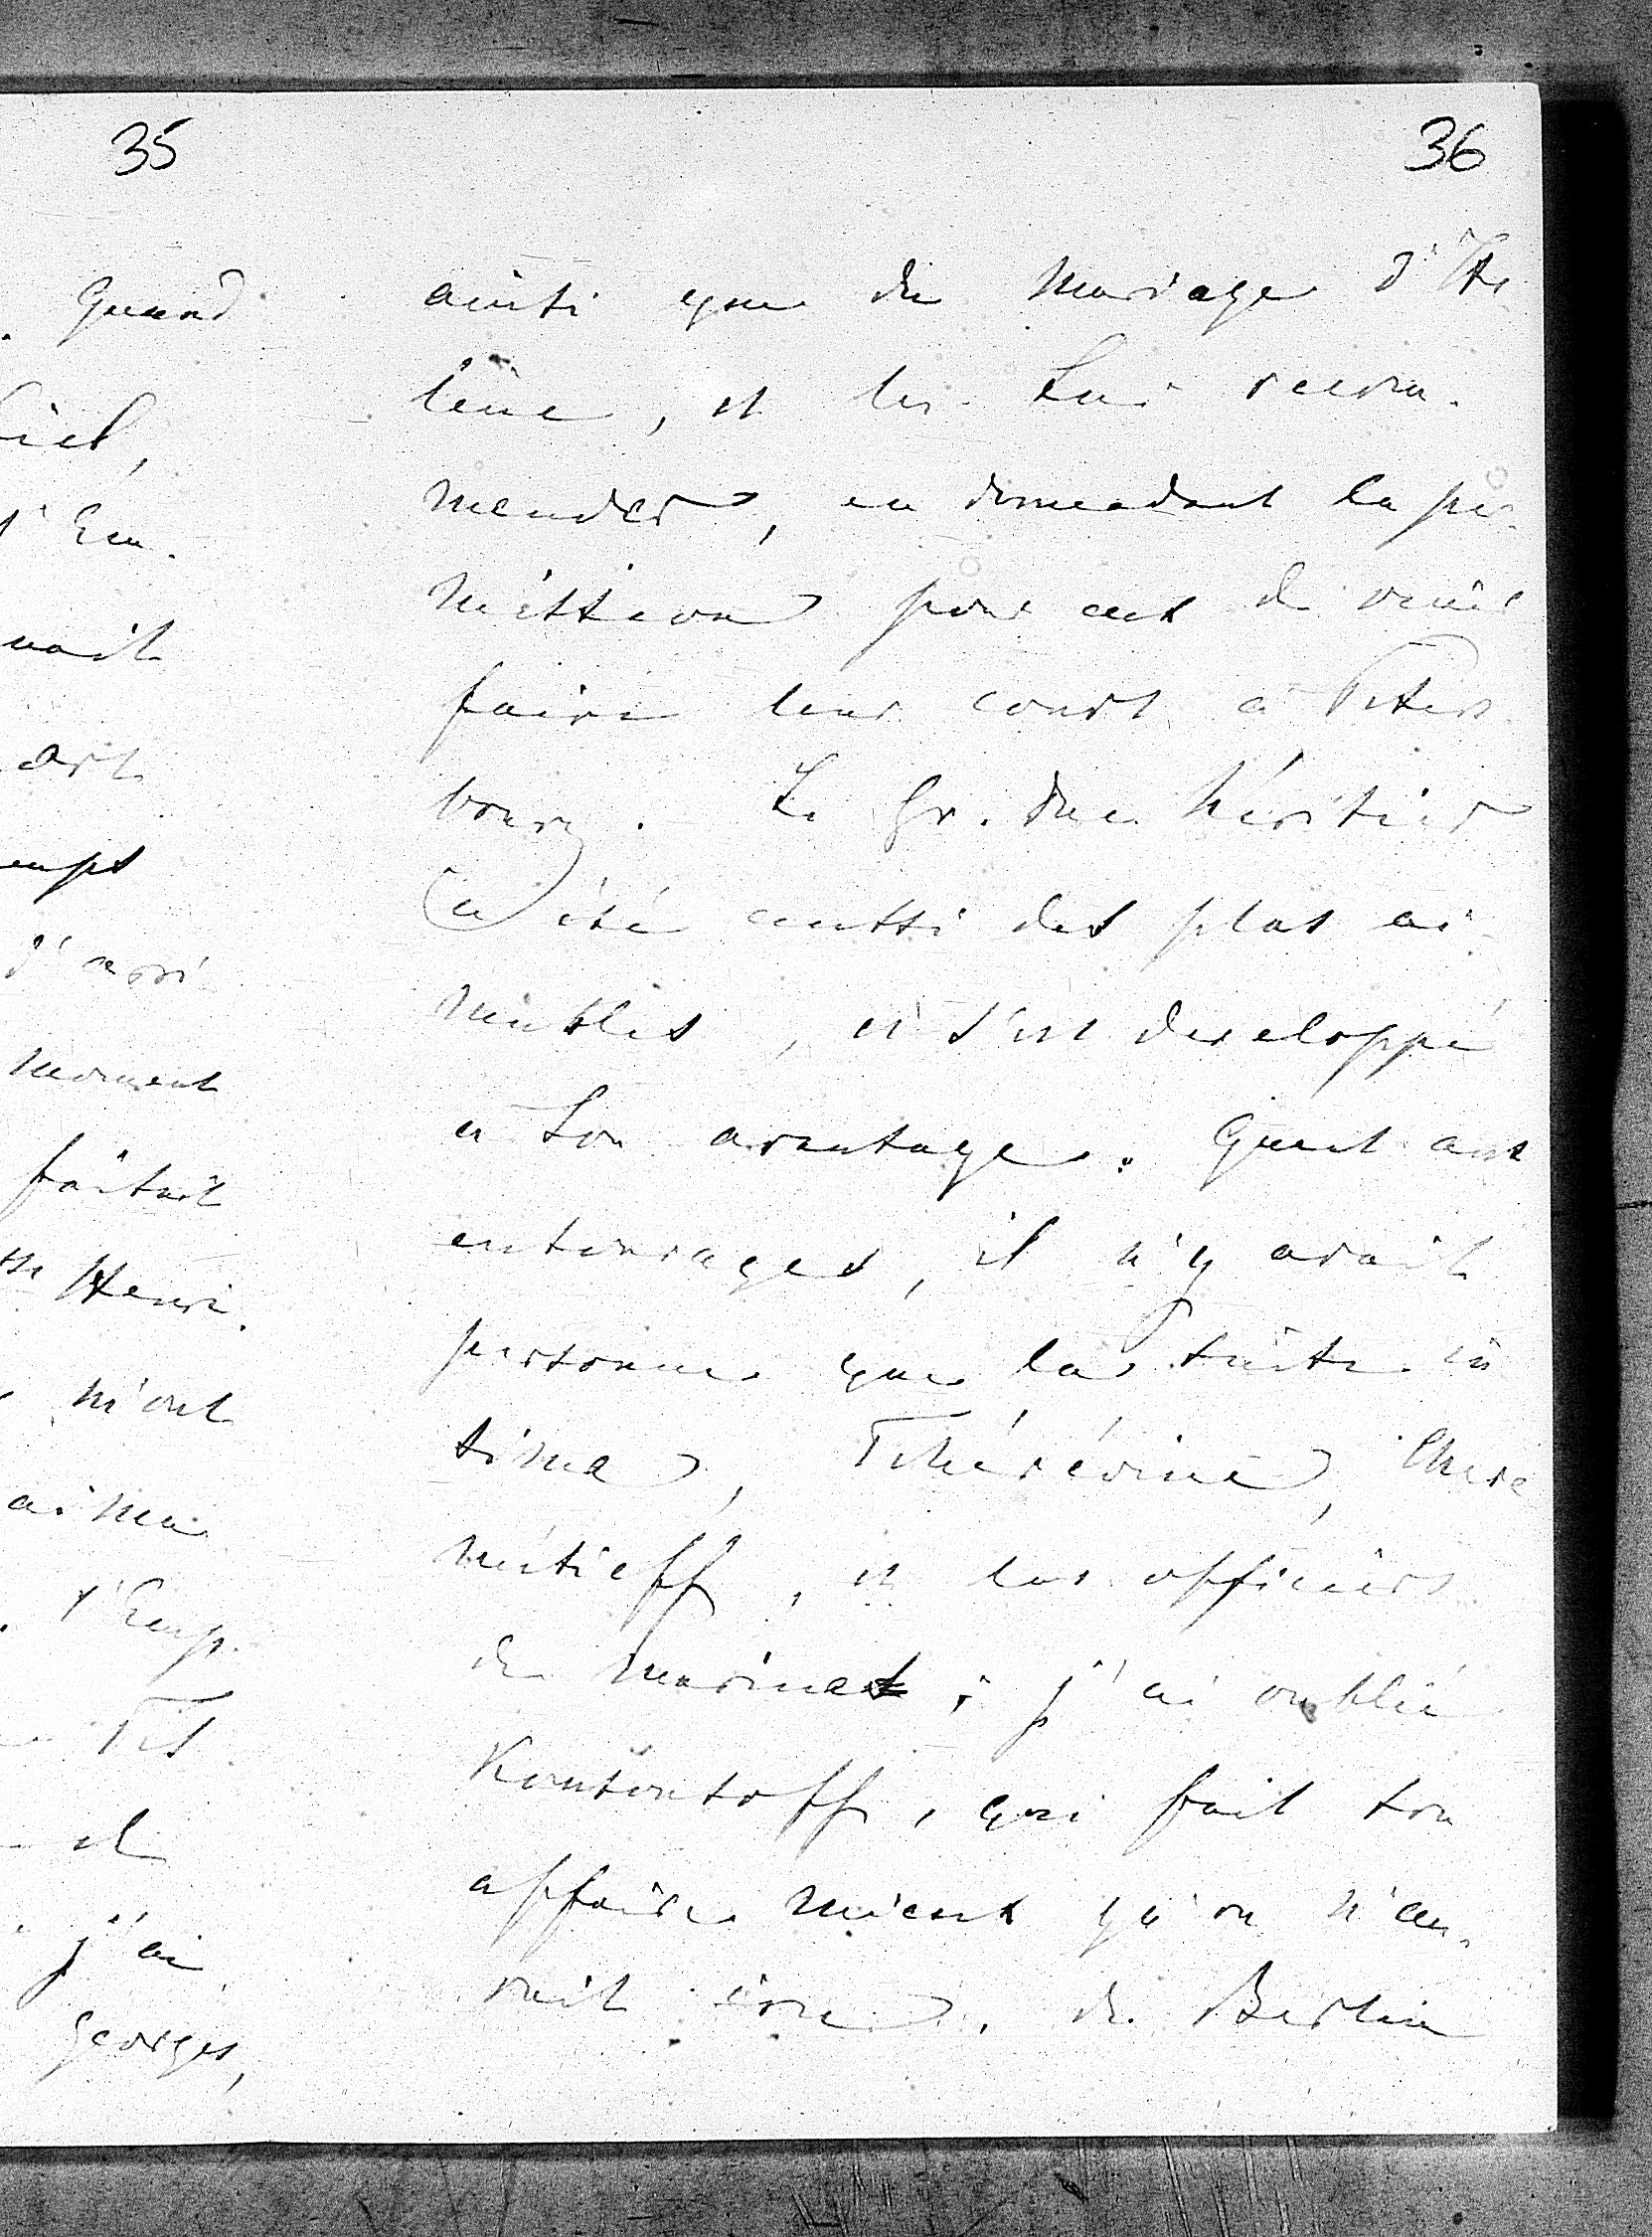 35
Quand
Kiel,
l'Em.
nait
ort
emps
d'arri
moment
faisait
Henri.
m'ont
aima
l'Emp.
Pét
et
j'ai
Georges,
36
ainsi que du mariage d'Hé
lène, et les Lui recom.
mander, en demandant la per
mission pour eux de venir
faire leur cour à Péters
bourg. Le Gr. duc héritier
a été aussi des plus ai
mables, et s'est developpé
à son avantage. Quant aux
entourages, il n'y avait
personne que la suite in
time, Tchérévine, Chere
métieff, et les officiers
de marine; j'ai oublié
Koutousoff, qui fait son
affaire mieux qu'on n'au.
rait cru, de Berlin